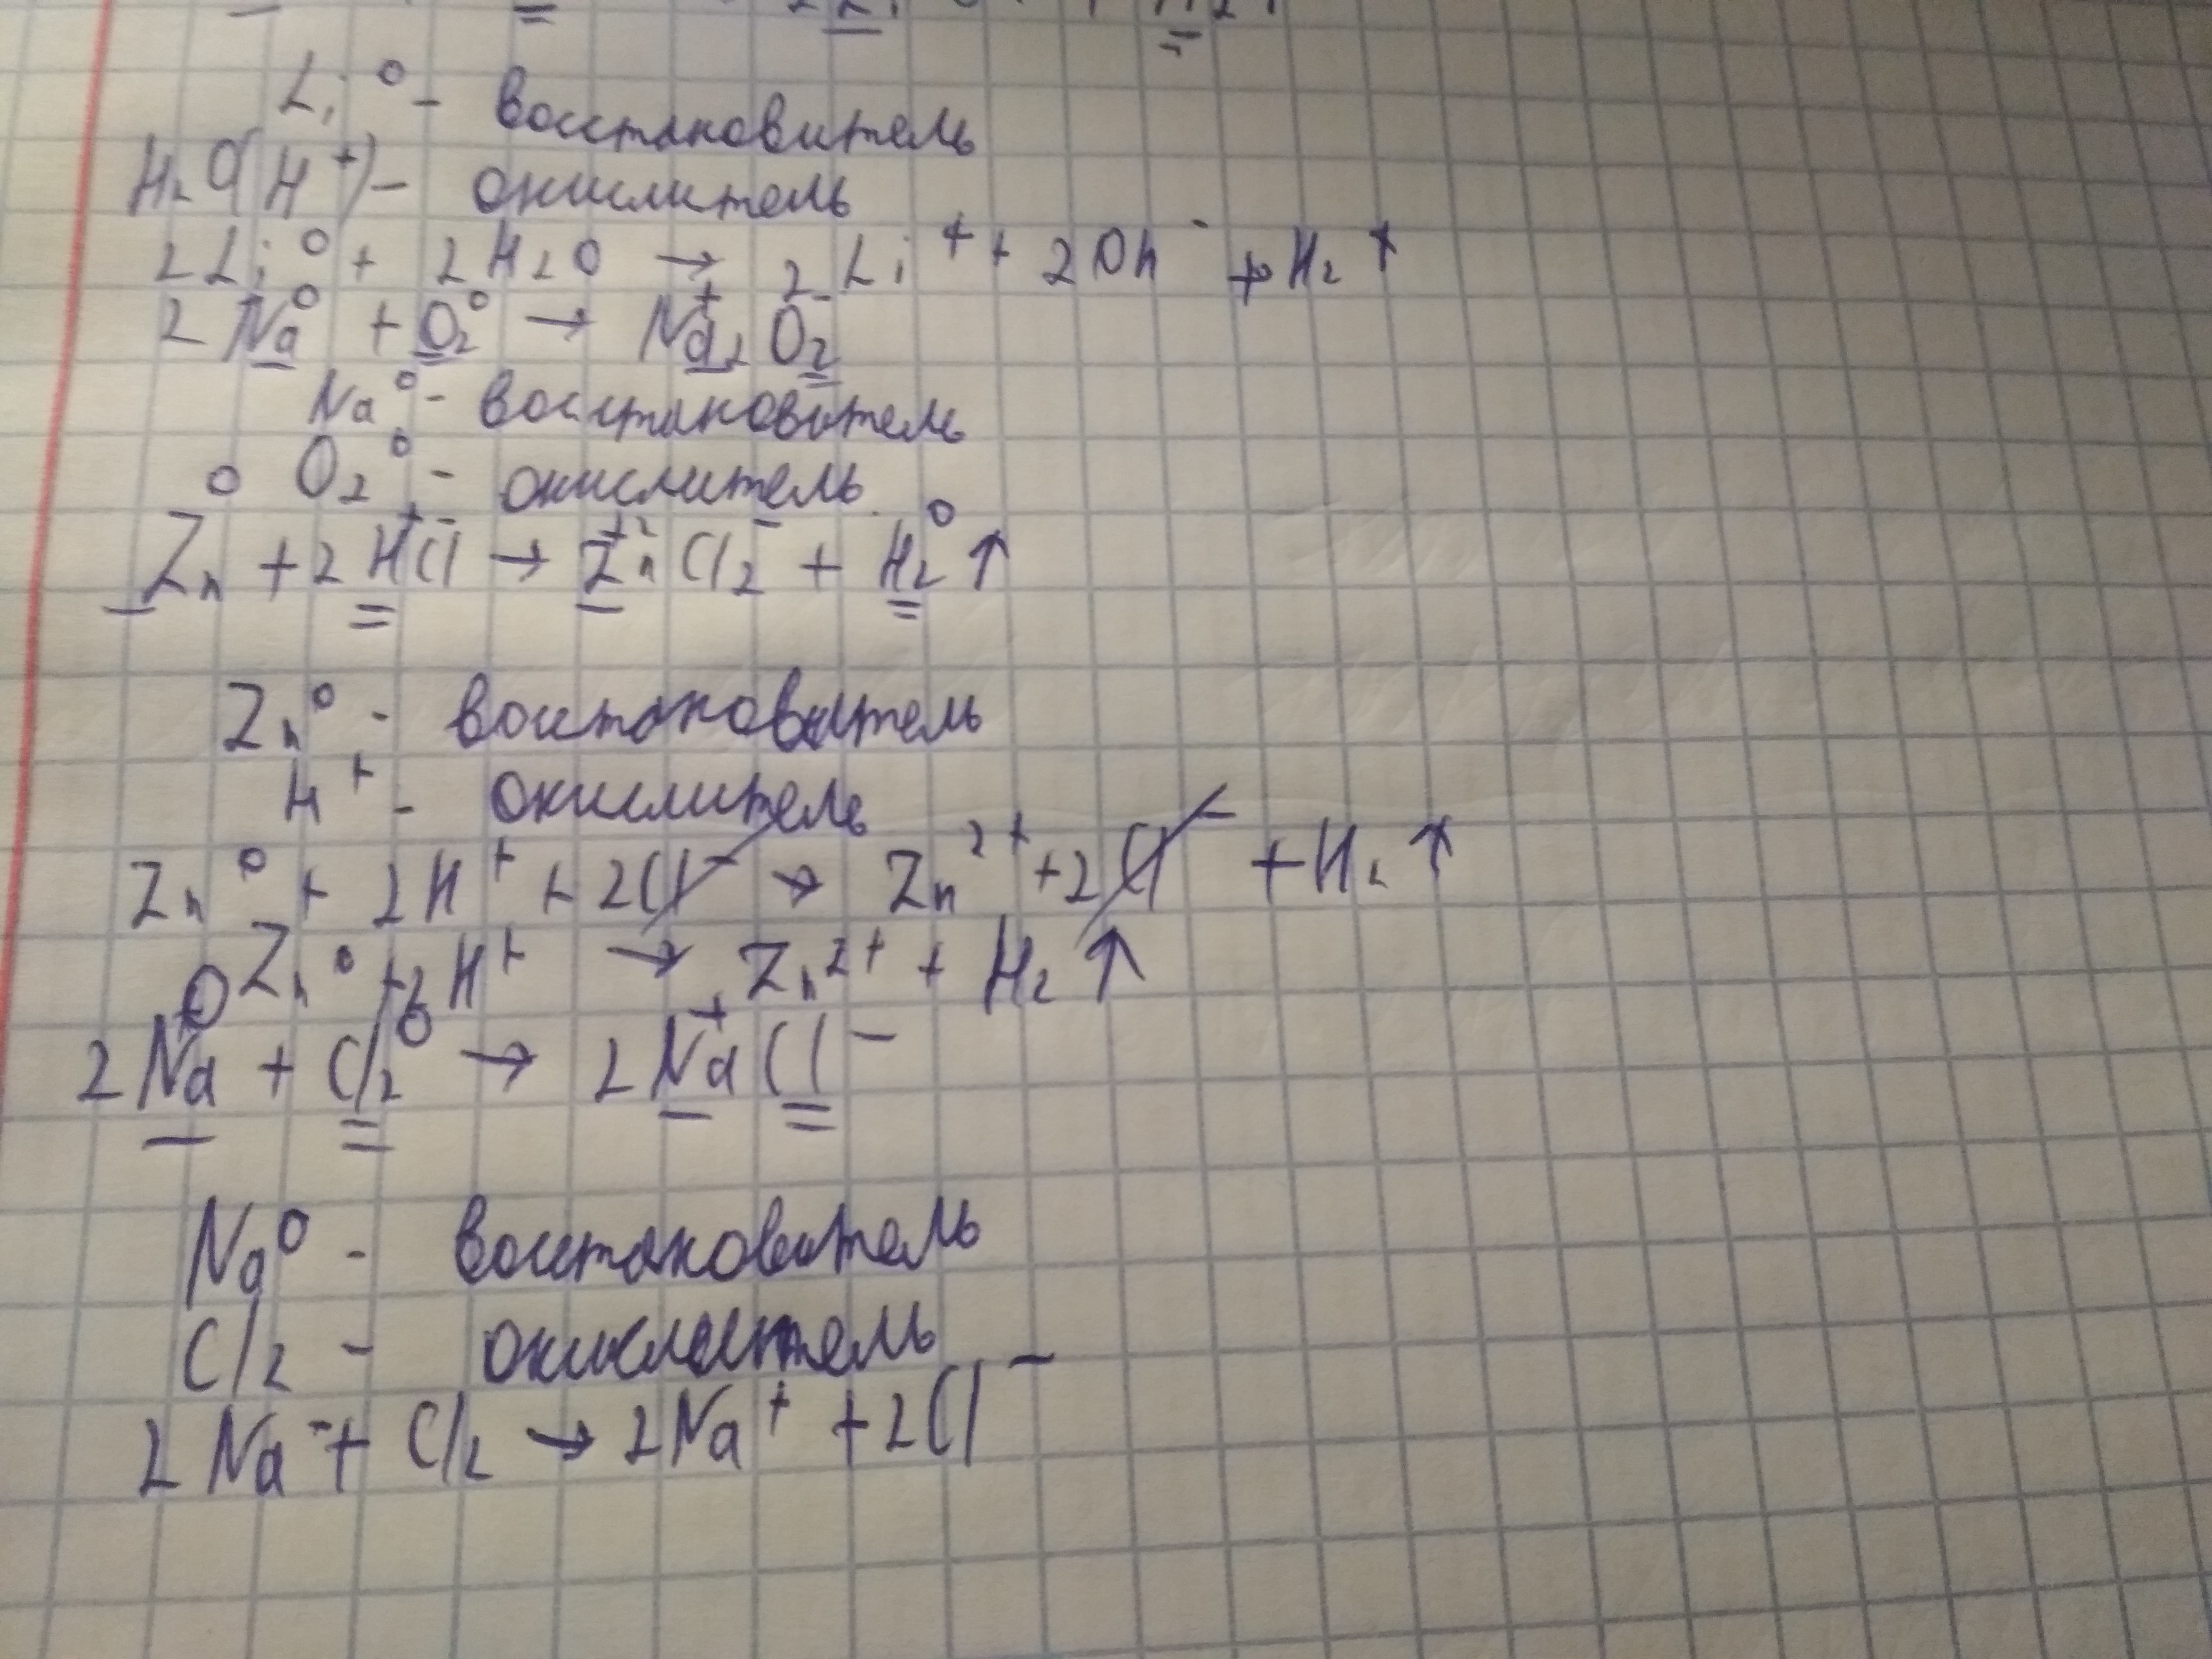 Li⁰ - восстановитель
H₂O(H⁺) - окислитель
2Li⁰ + 2H₂O → 2Li⁺ + 2OH⁻ + H₂↑
2Na⁰ + O₂⁰ → Na₂⁺O₂⁻
Na⁰ - восстановитель
O₂⁰ - окислитель
Zn⁰ + 2H⁺Cl⁻ → Zn⁺²Cl₂⁻ + H₂⁰↑
Zn⁰ - восстановитель
H⁺ - окислитель
Zn⁰ + 2H⁺ + 2Cl⁻ → Zn²⁺ + 2Cl⁻ + H₂↑
Zn⁰ + 2H⁺ → Zn²⁺ + H₂↑
2Na⁰ + Cl₂⁰ → 2Na⁺Cl⁻
Na⁰ - восстановитель
Cl₂ - окислитель
2Na⁻ + Cl₂ → 2Na⁺ + 2Cl⁻